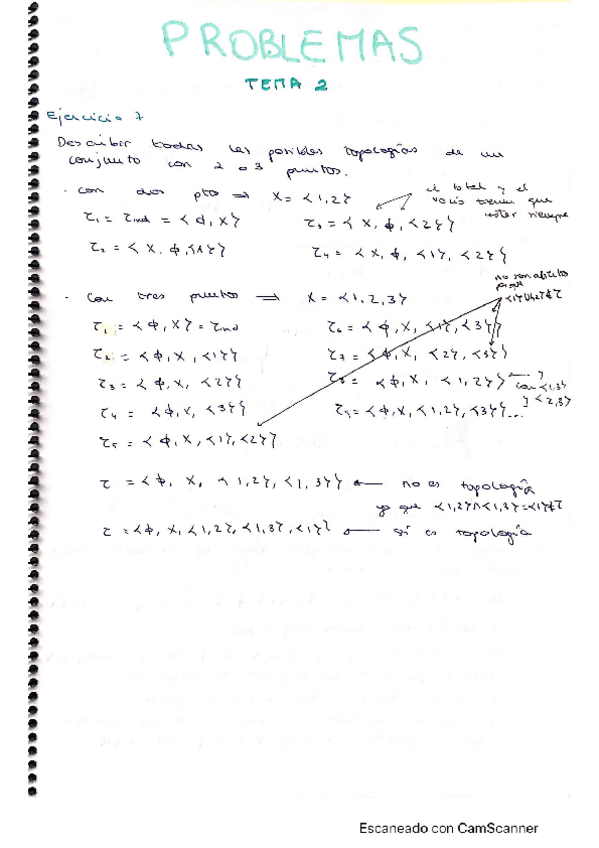 PROBLEMAS
TEMA 2
Ejercicio 7
Describir todas las posibles topologías de un
conjunto con 2 o 3 puntos.
· Con dos pto ⇒ X = {1,2}
el total y el
vacío tienen que
estar siempre
τ₁ = τind = {ϕ, X} τ₃ = { X, ϕ, {2}}
τ₂ = { X, ϕ, {1}} τ₄ = { X, ϕ, {1}, {2}}
no son abiertos
{1}∪{2}∉τ
· Con tres puntos ⇒ X = {1,2,3}
τ₁ = {ϕ, X} = τind τ₆ = { ϕ, X, {1}, {3}}
τ₂ = {ϕ, X, {1}} τ₇ = {ϕ, X, {2}, {3}}
τ₃ = {ϕ, X, {2}} τ₈ = {ϕ, X, {1,2}} ← y
con {1,3}
y {2,3}
τ₄ = {ϕ, X, {3}} = {ϕ, X, {1,2}, {3}}...
τ₅ = {ϕ, X, {1}, {2}}
τ = {ϕ, X, {1,2}, {1,3}} ← no es topología
ya que {1,2}∩{1,3}={1}∉τ
τ = {ϕ, X, {1,2}, {1,3}, {1}} ← sí es topología
Escaneado con CamScanner